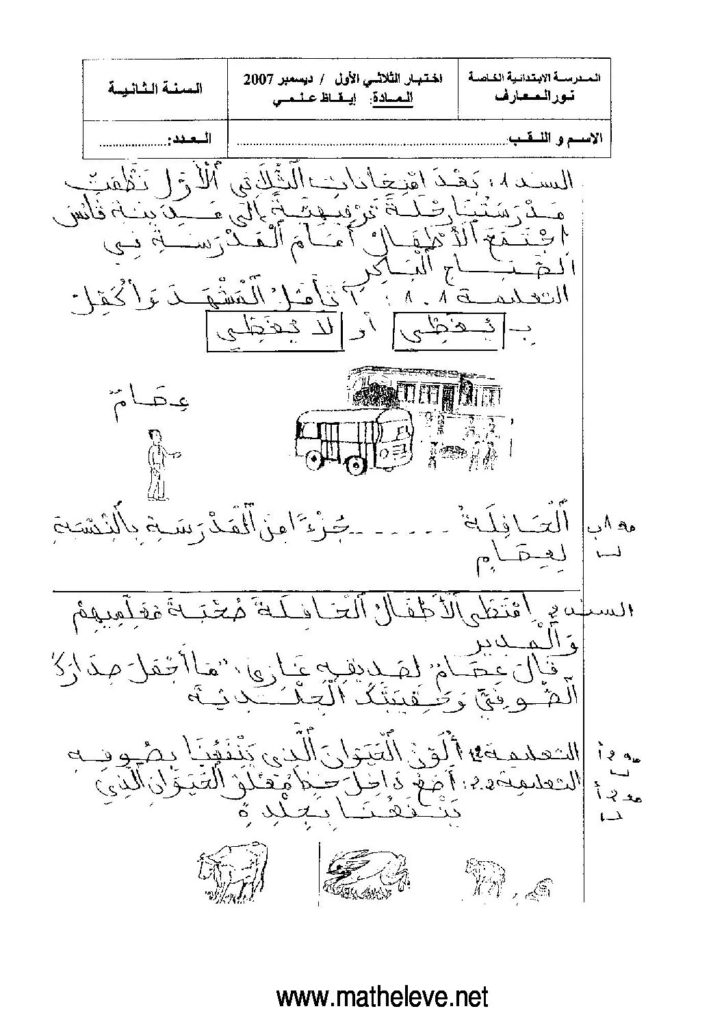 المدرسة الابتدائية الخاصة
نور المعارف
اختبار الثلاثي الأول / ديسمبر 2007
المادة: إيقاظ علمي
السنة الثانية
الاسم و اللقب:
العدد:
السند 1: بَعْدَ امْتِحَانَاتِ الثُّلَاثِي الْأَوَّل نَظَّمَتْ
مَدْرَسَتُنَا رِحْلَةً تَرْفِيهِيَّةً إِلَى مَدِينَة قَابِس
اِجْتَمَعَ الْأَطْفَالُ أَمَامَ الْمَدْرَسَةِ فِي
الصَّبَاحِ الْبَاكِرِ
التعليمة 1.1: أَتَأَمَّلُ الْمَشْهَدَ وَأُكْمِلُ
بِـ يُغَطِّي أو لَا يُغَطِّي
عِصَامٌ
الْحَافِلَةُ ....... جُزْءًا مِنَ الْمَدْرَسَةِ بِالنِّسْبَةِ
لِعِصَامٍ
مع 1ب
السند 2: اِمْتَطَى الْأَطْفَالُ الْحَافِلَةَ صُحْبَةَ مُعَلِّمِيهِمْ
وَالْمُدِير
قَالَ عِصَامٌ لِصَدِيقِهِ غَازِي: "مَا أَجْمَلَ صِدَارَكَ
الصُّوفِيَّ وَحَقِيبَتَكَ الْجِلْدِيَّةَ
التعليمة 1.2: أُلَوِّنُ الْحَيَوَانَ الَّذِي يَنْفَعُنَا بِصُوفِهِ
مع 2أ
التعليمة 2.2: أَضَعُ دَاخِلَ خَطٍّ مُغْلَقٍ الْحَيَوَانَ الَّذِي
يَنْفَعُنَا بِجِلْدِهِ
مع 2أ
www.matheleve.net